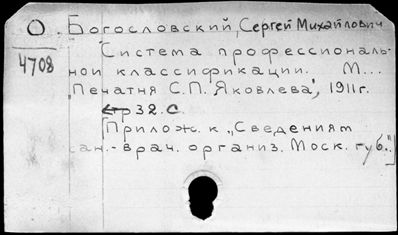 О. Богословский, Сергей Михайлович
4708
Система профессиональ-
ной классификации. М...
"Печатня С.П. Яковлева", 1911г.
стр 32. С.
[Прилож. к „Сведениям
сан.-врач. организ. Моск. губ."]